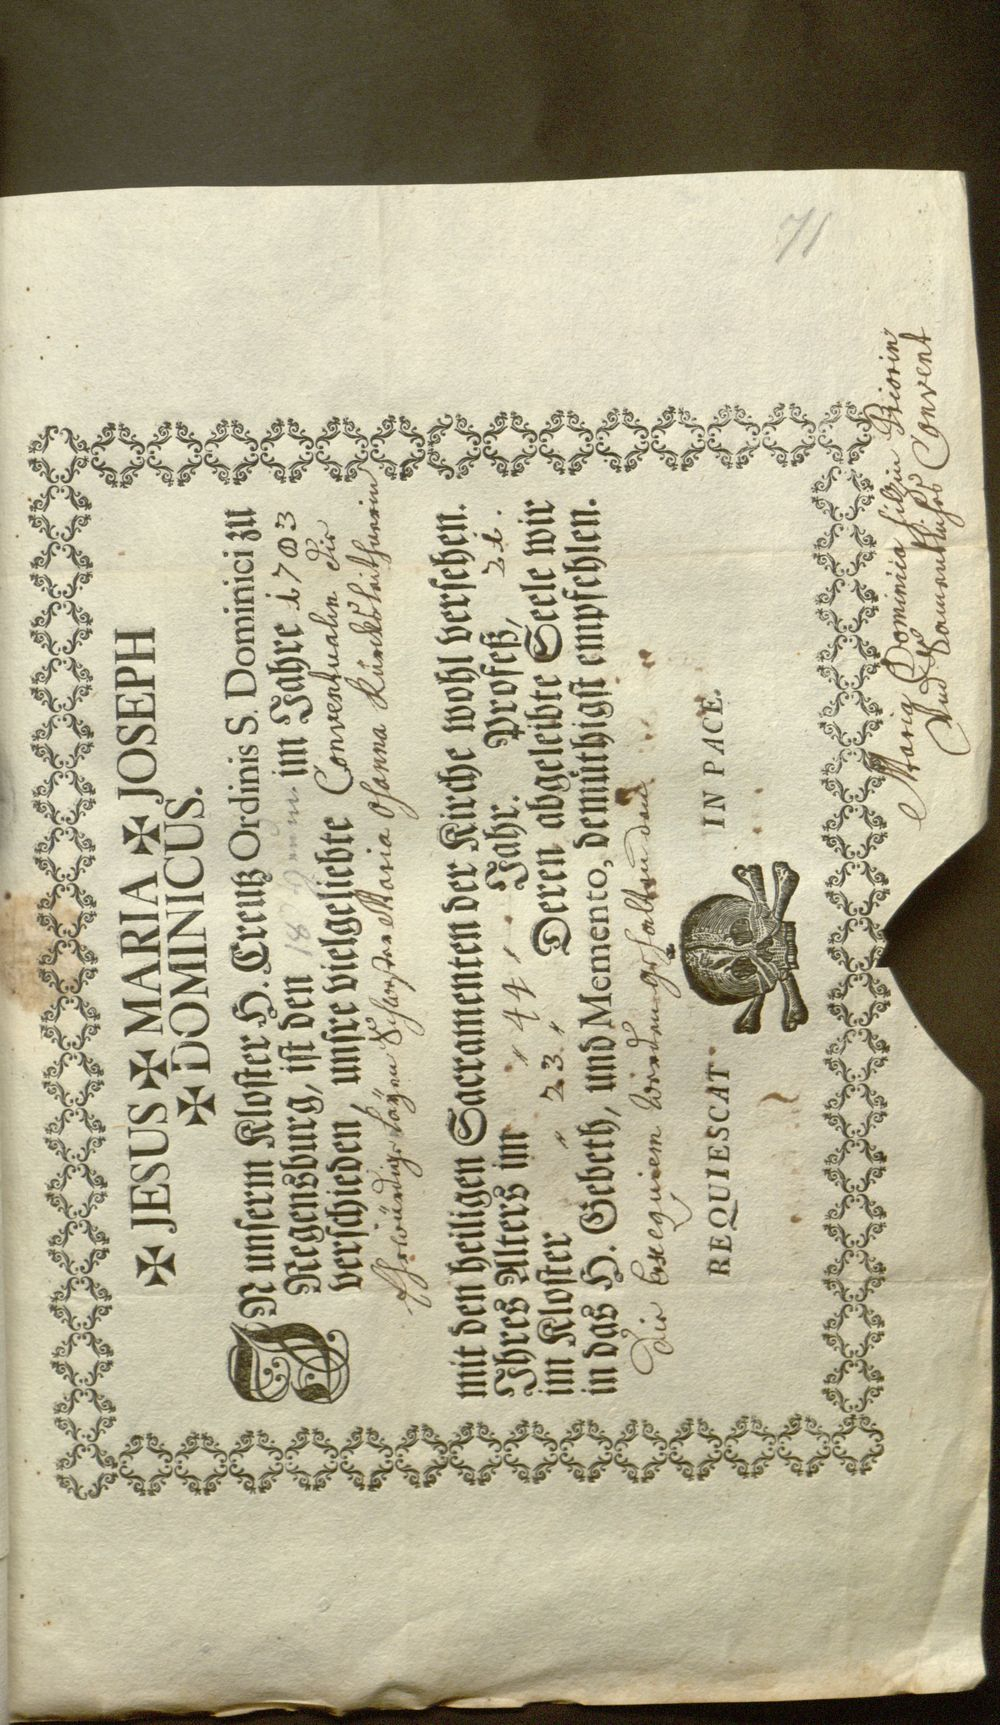 71
✠ JESUS ✠ MARIA ✠ JOSEPH
✠ DOMINICUS.
IN unserm Kloster H. Creutz Ordinis S. Dominici zu
Regensburg, ist den 18 im Jahre 1783
verschieden, unsre vielgeliebte Conventualin die
Ehrwürdig: Schwester Maria Osanna
mit den heiligen Sacramenten der Kirche wohl versehen.
Ihres Alters im 44 Jahr. Profeß, 21.
im Kloster 23 Deren abgeleibte Seele wir
in das H. Gebeth, und Memento, demüthigst empfehlen.
die exequiem werden gehalten den
REQUIESCAT IN PACE.
Maria Dominica Priorin
Und Convent